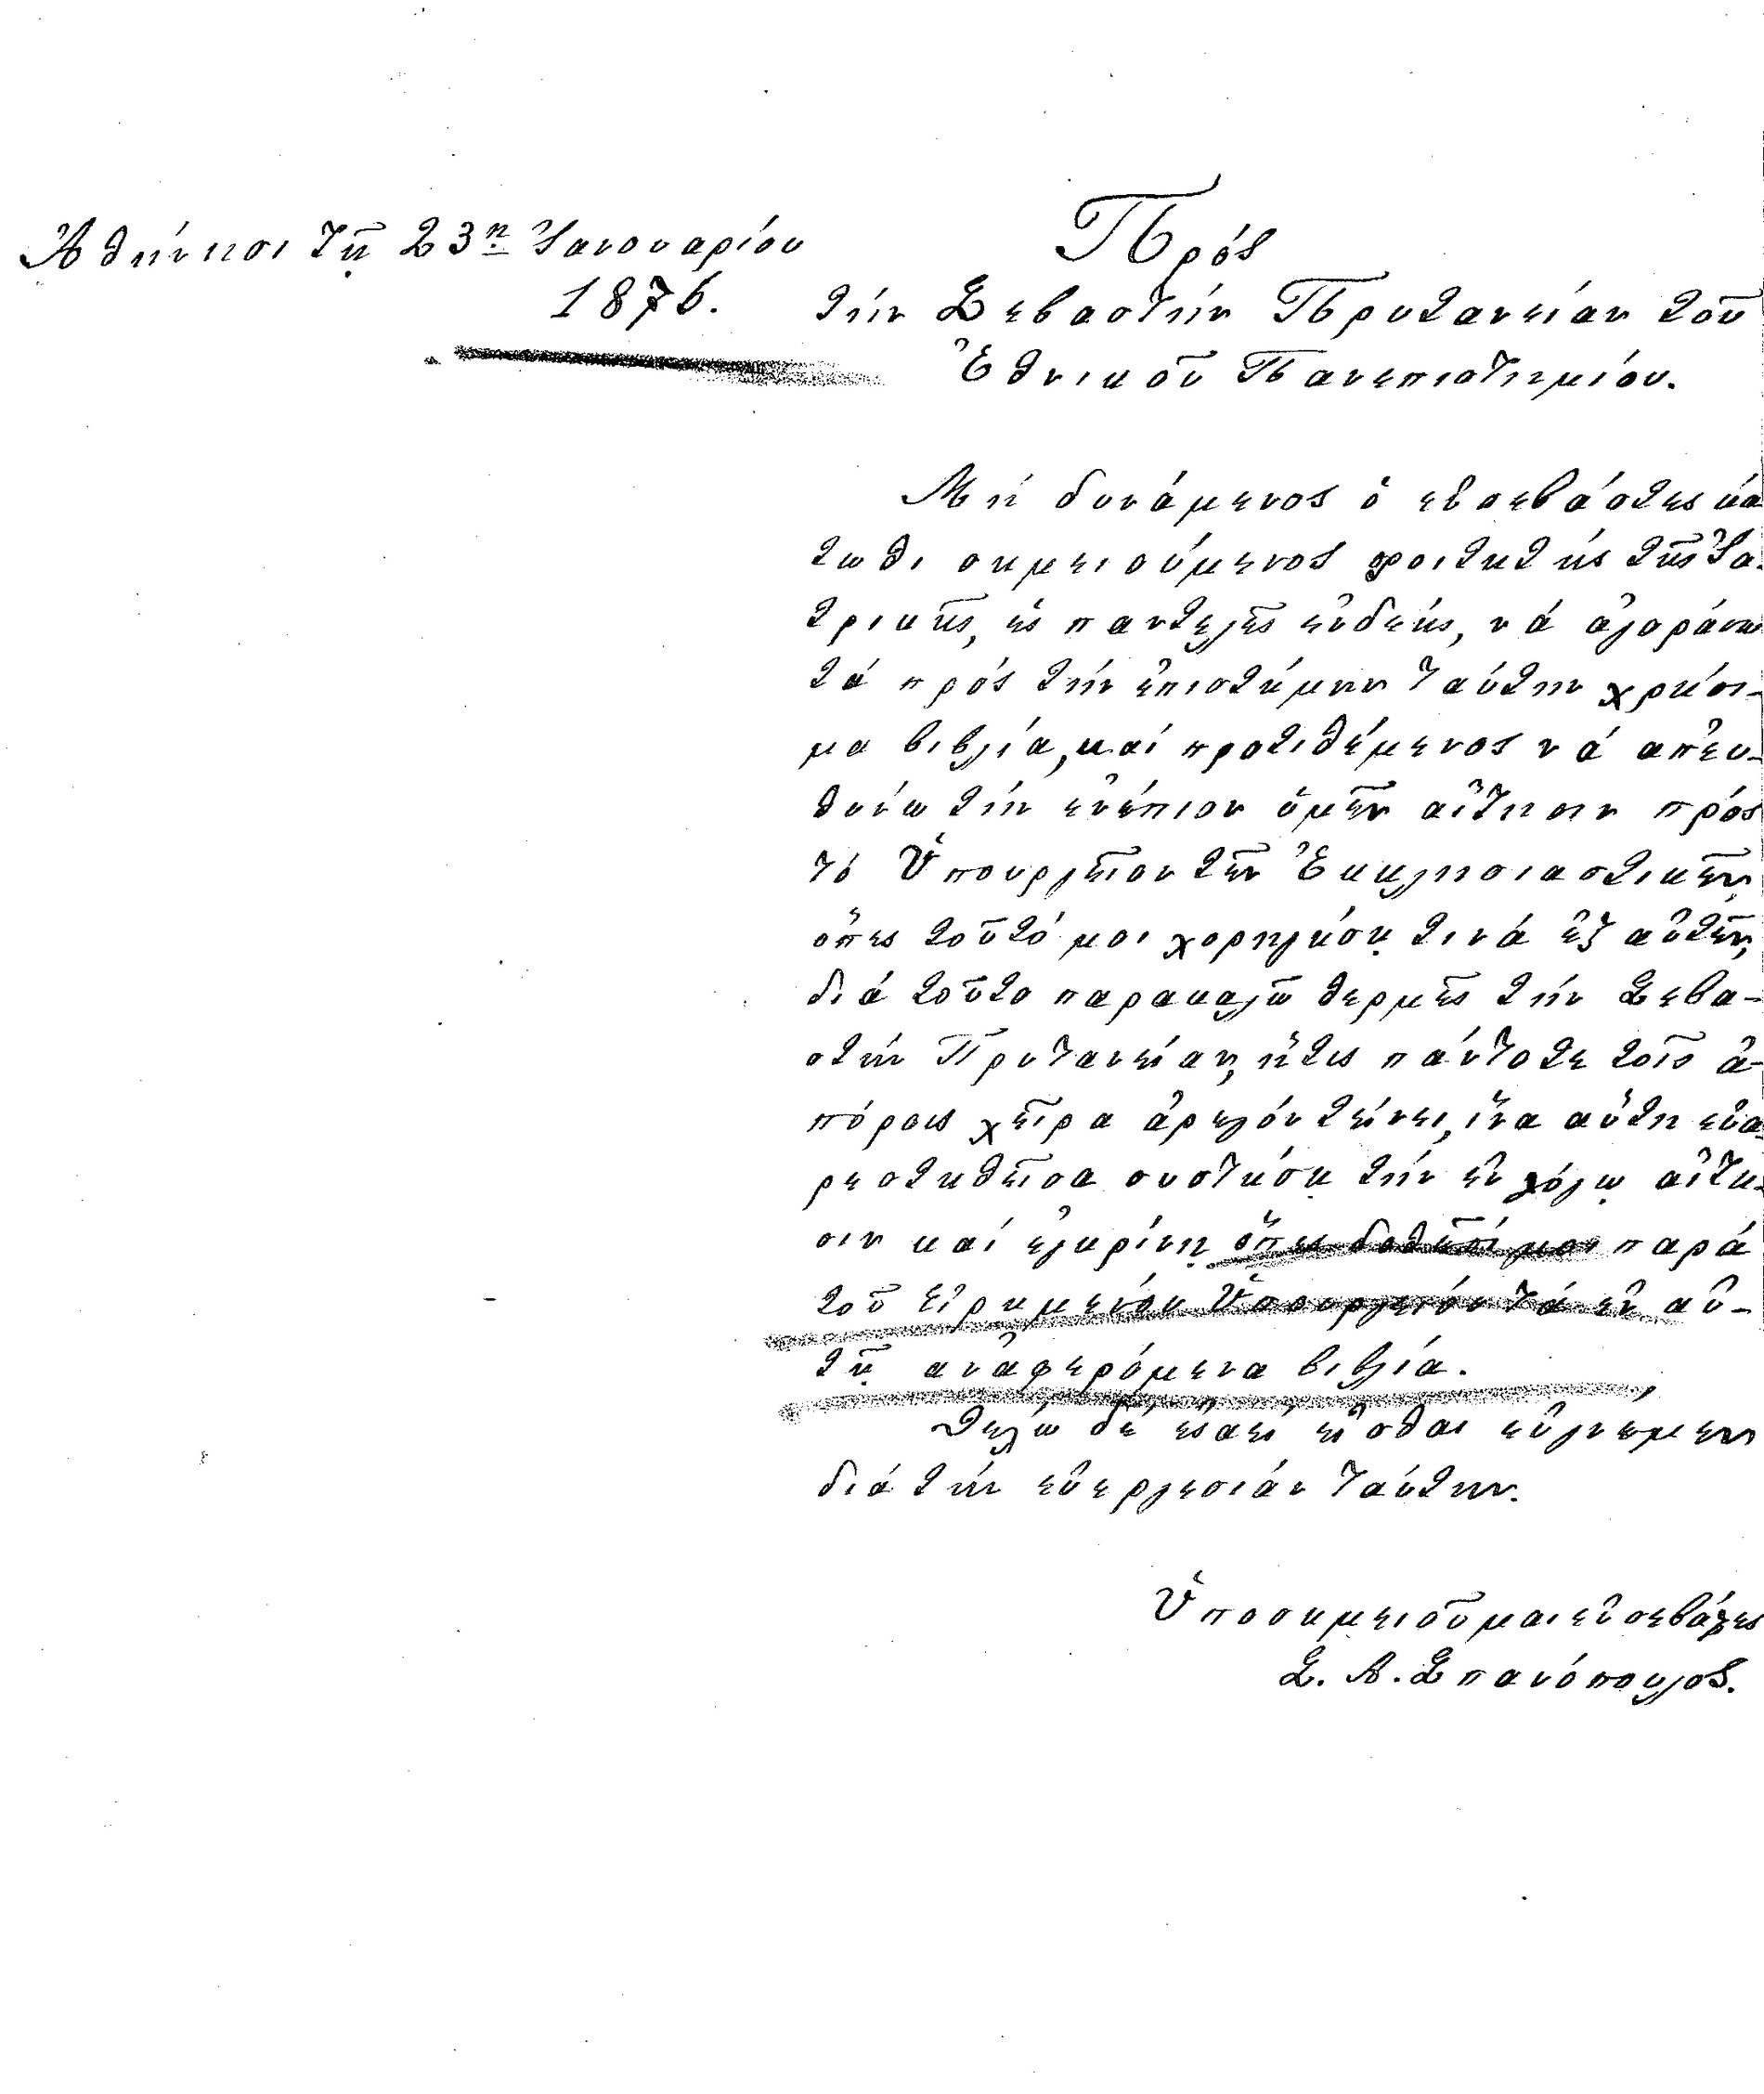 Ἀθήνησι τῇ 23ῃ Ἰανουαρίου
1876.
Πρός
τήν Σεβαστήν Πρυτανείαν τοῦ
Ἐθνικοῦ Πανεπιστημίου.
Μή δυνάμενος ὁ εὐσεβάστως κά
τωθι σημειούμενος φοιτητής τῆς Ἰα
τρικῆς, ὡς παντελῶς ἐνδεής, νά ἀγοράσω
τά πρός τήν ἐπιστήμην ταύτην χρήσι-
μα βιβλία, καί προτιθέμενος νά ἀπευ-
θύνω τήν ἐνώπιον ὑμῶν αἴτησιν πρός
τό Ὑπουργεῖον τῶν Ἐκκλησιαστικῶν,
ὅπως τοῦτό μοι χορηγήσῃ τινά ἐξ αὐτῶν,
διά τοῦτο παρακαλῶ θερμῶς τήν Σεβα-
στήν Πρυτανείαν, ἥτις πάντοτε τοῖς ἀ-
πόροις χεῖρα ἀρωγόν τείνει, ἵνα αὕτη εὐα
ρεστηθεῖσα συστήσῃ τήν ἐν λόγῳ αἴτη-
σιν καί ἐγκρίνῃ ὅπως δοθῶσί μοι παρά
τοῦ εἰρημένου Ὑπουργείου τά ἐν αὐ-
τῇ ἀναφερόμενα βιβλία.
Θέλω δέ ἐσαεί εἶσθαι εὐγνώμων
διά τήν εὐεργεσίαν ταύτην.
Ὑποσημειοῦμαι εὐσεβάστως
Σ. Α. Σπανόπουλος.